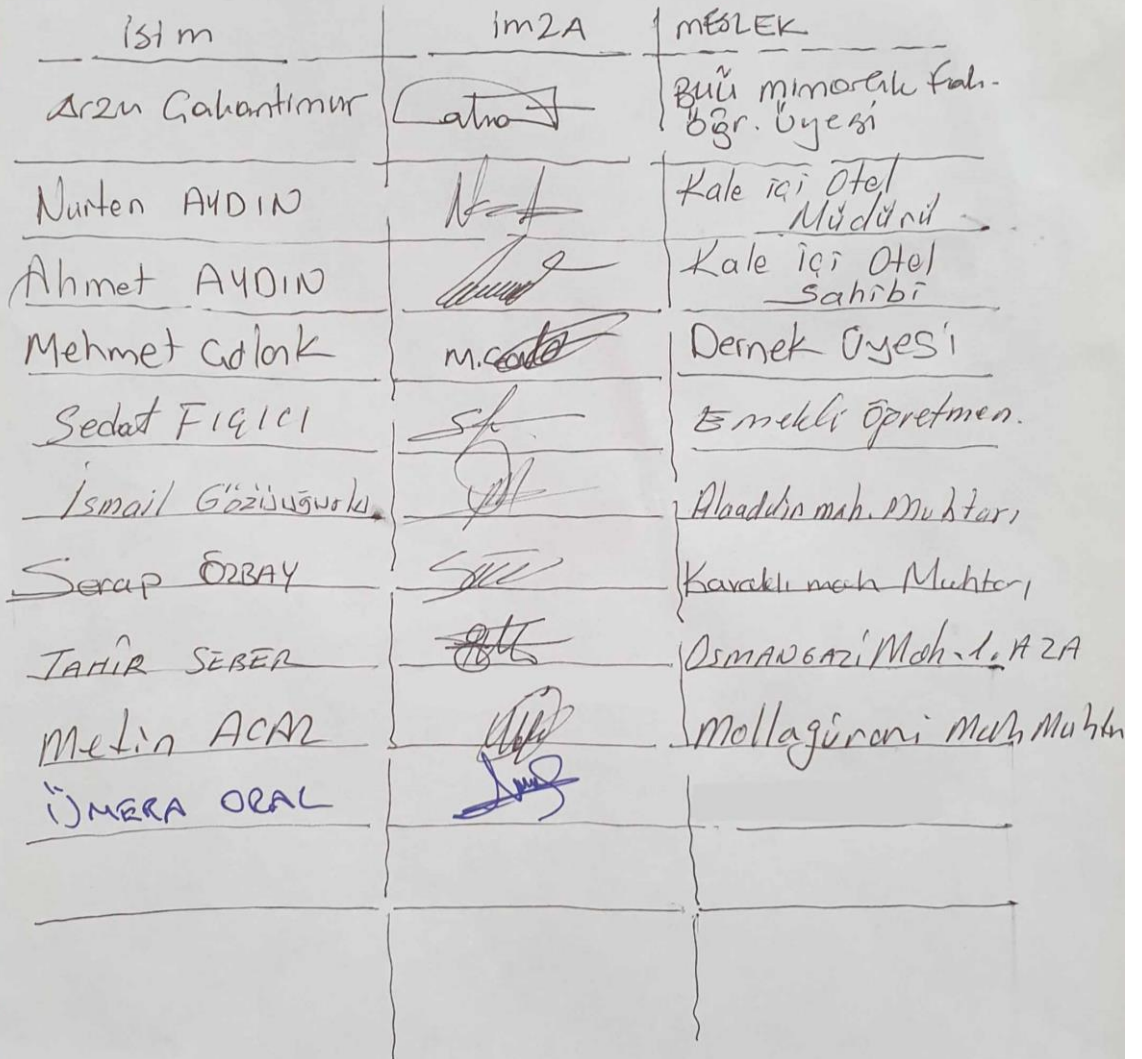 isim imza MESLEK
Arzu Çahantimur BUÜ mimarlık Fak.
öğr. üyesi
Nurten AYDIN Kale içi Otel
Müdürü
Ahmet AYDIN Kale içi Otel
Sahibi
Mehmet M. Dernek Üyesi
Sedat FIÇICI Emekli Öğretmen.
İsmail Alaaddin mah. Muhtarı
Serap ÖZBAY Kavaklı mah Muhtarı
TAHİR SEBER OSMANGAZİ Mah. 1. AZA
Metin ACAR Mollagürani Mah Muhtarı
ÜMERA ORAL